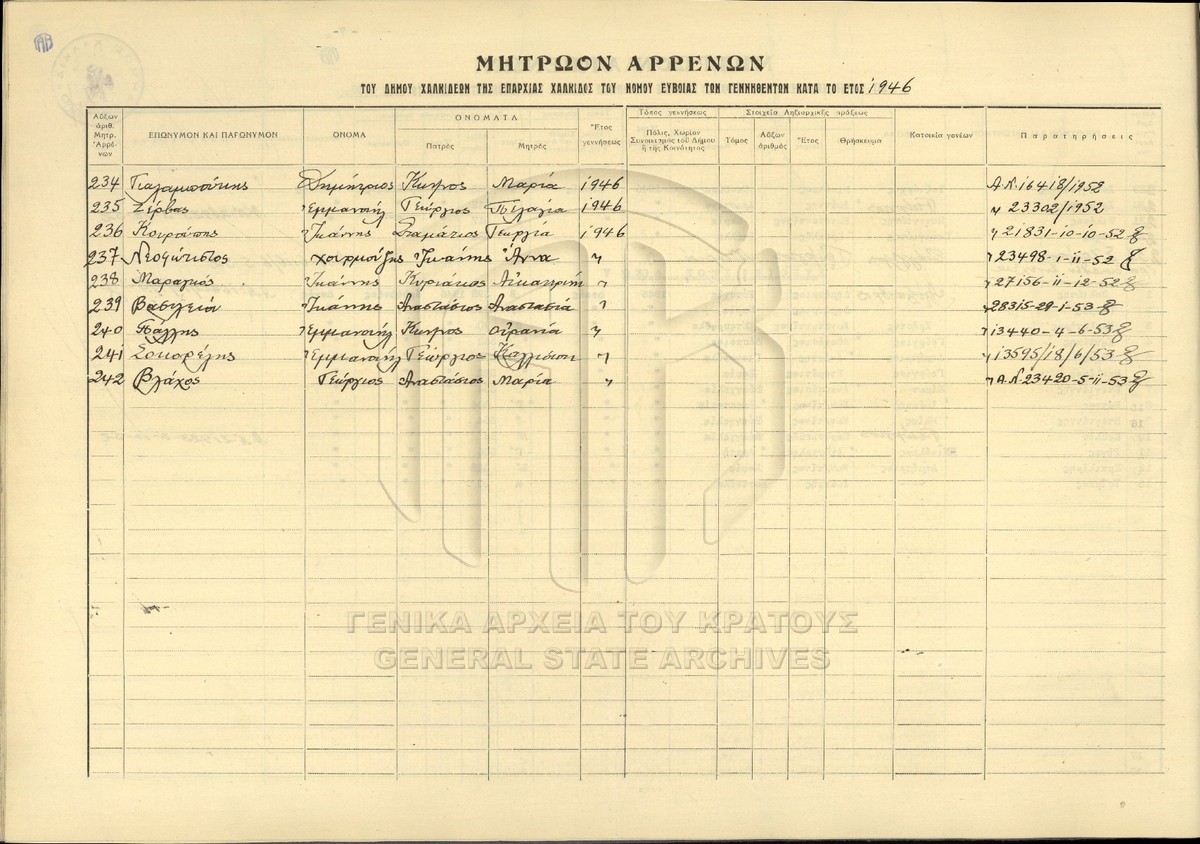 ΜΗΤΡΩΟΝ ΑΡΡΕΝΩΝ
ΤΟΥ ΔΗΜΟΥ ΧΑΛΚΙΔΕΩΝ ΤΗΣ ΕΠΑΡΧΙΑΣ ΧΑΛΚΙΔΟΣ ΤΟΥ ΝΟΜΟΥ ΕΥΒΟΙΑΣ ΤΩΝ ΓΕΝΝΗΘΕΝΤΩΝ ΚΑΤΑ ΤΟ ΕΤΟΣ 1946
Αὔξων ἀριθ. Μητρ. Ἀρρένων ΕΠΩΝΥΜΟΝ ΚΑΙ ΠΑΡΩΝΥΜΟΝ ΟΝΟΜΑ ΟΝΟΜΑΤΑ Πατρός Μητρός Ἔτος γεννήσεως Τόπος γεννήσεως Πόλις, Χωρίον Συνοικισμὸς τοῦ Δήμου ἢ τῆς Κοινότητος Στοιχεῖα Ληξιαρχικῆς πράξεως Τόμος Αὔξων ἀριθμός Ἔτος Θρήσκευμα Κατοικία γονέων Παρατηρήσεις
234 Δημήτριος Κων/νος Μαρία 1946 Α.Ν. 16418/1952
235 Ζέρβας Ἐμμανουήλ Γεώργιος Πελαγία 1946 〃 23302/1952
236 Ἰωάννης Σταμάτιος Γεωργία 1946 〃 21831-10-10-52
237 Νεοφώτιστος Ἰωάννης Ἄννα 〃 〃 23498-1-11-52
238 Μαραγκός Ἰωάννης Κυριάκος Αἰκατερίνη 〃 〃 27156-11-12-52
239 Βασιλείου Ἰωάννης Ἀναστάσιος Ἀναστασία 〃 28315-29-1-53
240 Πάλλης Ἐμμανουήλ Κων/νος Οὐρανία 〃 〃 13440-4-6-53
241 Σοκορέλης Ἐμμανουήλ Γεώργιος Καλλιόπη 〃 〃 13595/18/6/53
242 Βλάχος Γεώργιος Ἀναστάσιος Μαρία 〃 〃 Α.Ν. 23420-5-11-53
ΓΕΝΙΚΑ ΑΡΧΕΙΑ ΤΟΥ ΚΡΑΤΟΥΣ
GENERAL STATE ARCHIVES